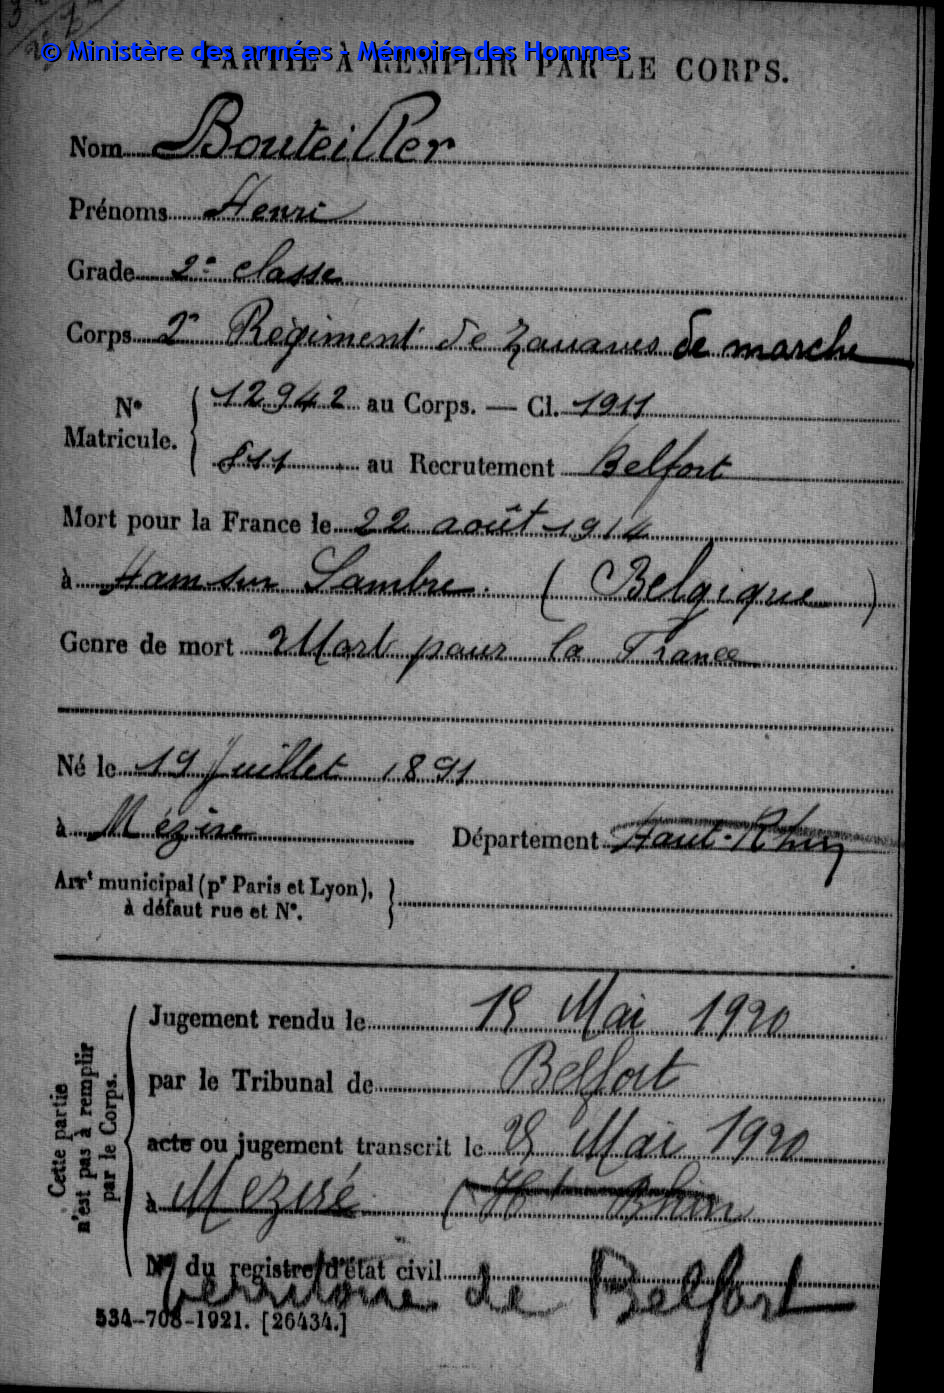 © Ministère des armées - Mémoire des Hommes
PARTIE À REMPLIR PAR LE CORPS.
Nom Bouteiller
Prénoms Henri
Grade 2e classe
Corps 2e Régiment de Zouaves de marche
No Matricule. { 12942 au Corps. — Cl. 1911
811 au Recrutement Belfort
Mort pour la France le 22 août 1914
à Ham sur Sambre. (Belgique)
Genre de mort Mort pour la France
Né le 19 Juillet 1891
à Mézire Département Haut-Rhin
Arrt municipal (pr Paris et Lyon),
à défaut rue et No.
Cette partie n'est pas à remplir par le Corps.
Jugement rendu le 19 Mai 1920
par le Tribunal de Belfort
acte ou jugement transcrit le Mai 1920
à Meziré (Ht Rhin
No du registre d'état civil
Territoire de Belfort
534-708-1921. [26434.]